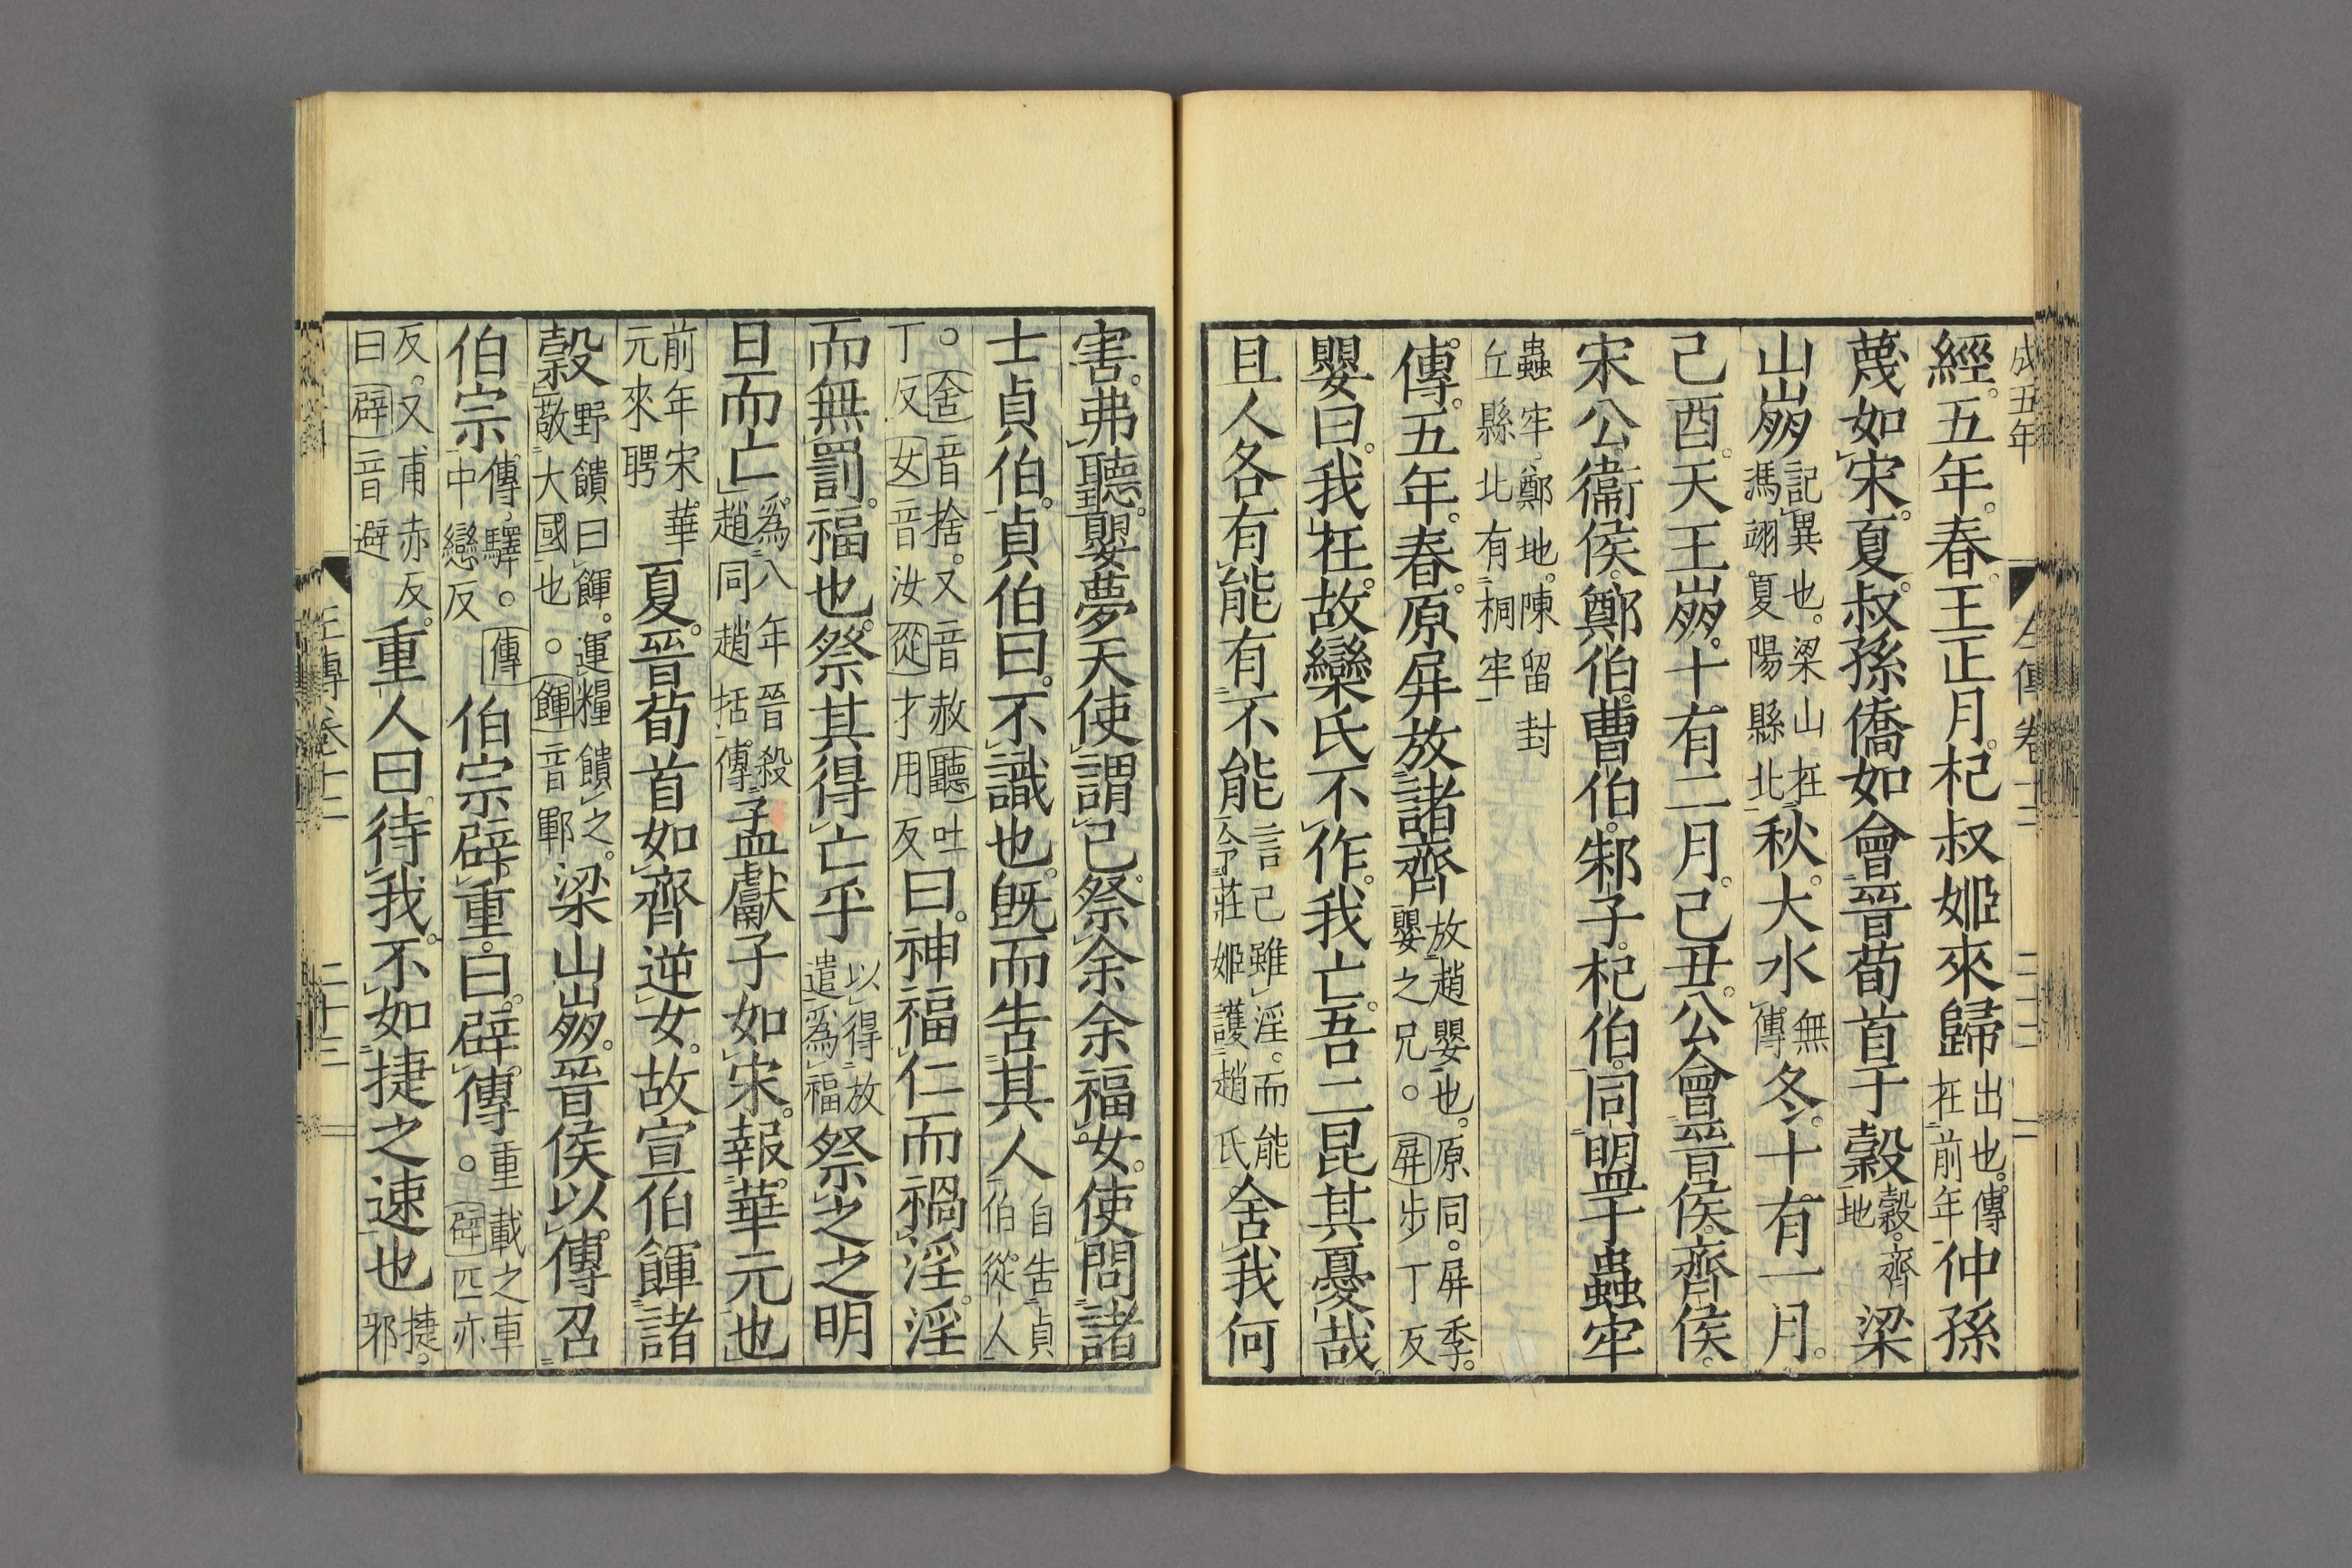 成五年
經。五年。春。王正月。杞叔姬來歸出也。傳在前年仲孫
蔑如宋。夏。叔孫僑如會晉荀首于穀穀。齊地梁
山崩記異也。梁山在馮翊。夏陽縣北秋。大水無傳冬。十有一月。
己酉。天王崩。十有二月。己丑。公會晉侯。齊侯。
宋公。衞侯。鄭伯。曹伯。邾子。杞伯。同盟于蟲牢
蟲牢。鄭地。陳留封丘縣北有桐牢
傳。五年。春。原屏放諸齊放趙嬰也。原同。屏季。嬰之兄。○屏步丁反
嬰曰。我在。故欒氏不作。我亡。吾二昆其憂哉
且人各有能有不能言己雖淫。而能令莊姬護趙氏。舍我何
害。弗聽。嬰夢天使謂己。祭余。余福女。使問諸
士貞伯。貞伯曰。不識也。旣而告其人自告貞伯從人
○舍音捨。又音赦聽吐丁反女音汝從才用反曰。神福仁而禍淫。淫
而無罰。福也。祭其得亡乎以得放遣爲福祭之之明
日而亡爲八年晉殺趙同趙括。傳孟獻子如宋。報華元也
前年宋華元來聘夏。晉荀首如齊逆女。故宣伯餫諸
穀野饋曰餫。運糧饋之。敬大國也。○餫音鄆梁山崩。晉侯以傳召
伯宗傳。驛。○傳中戀反伯宗辟重。曰。辟傳重載之車○辟匹亦
反。又甫赤反。曰辟音避。重人曰。待我。不如捷之速也捷。邪
左傳卷十二
二十三